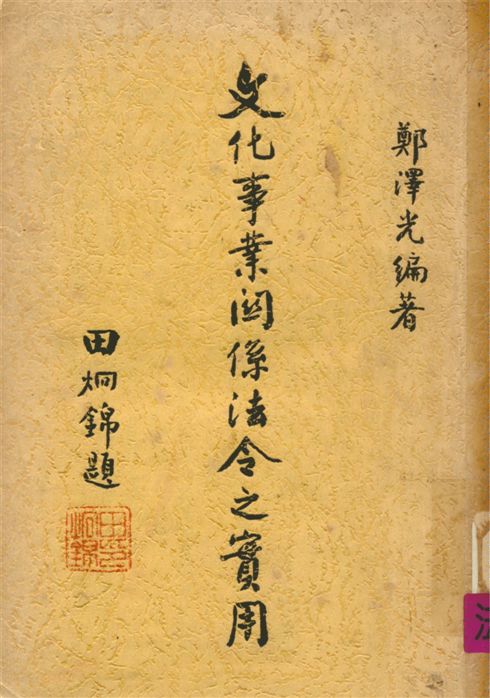 鄭澤光編著
文化事業関係法令之實用
田炯錦題
田炯錦印
法